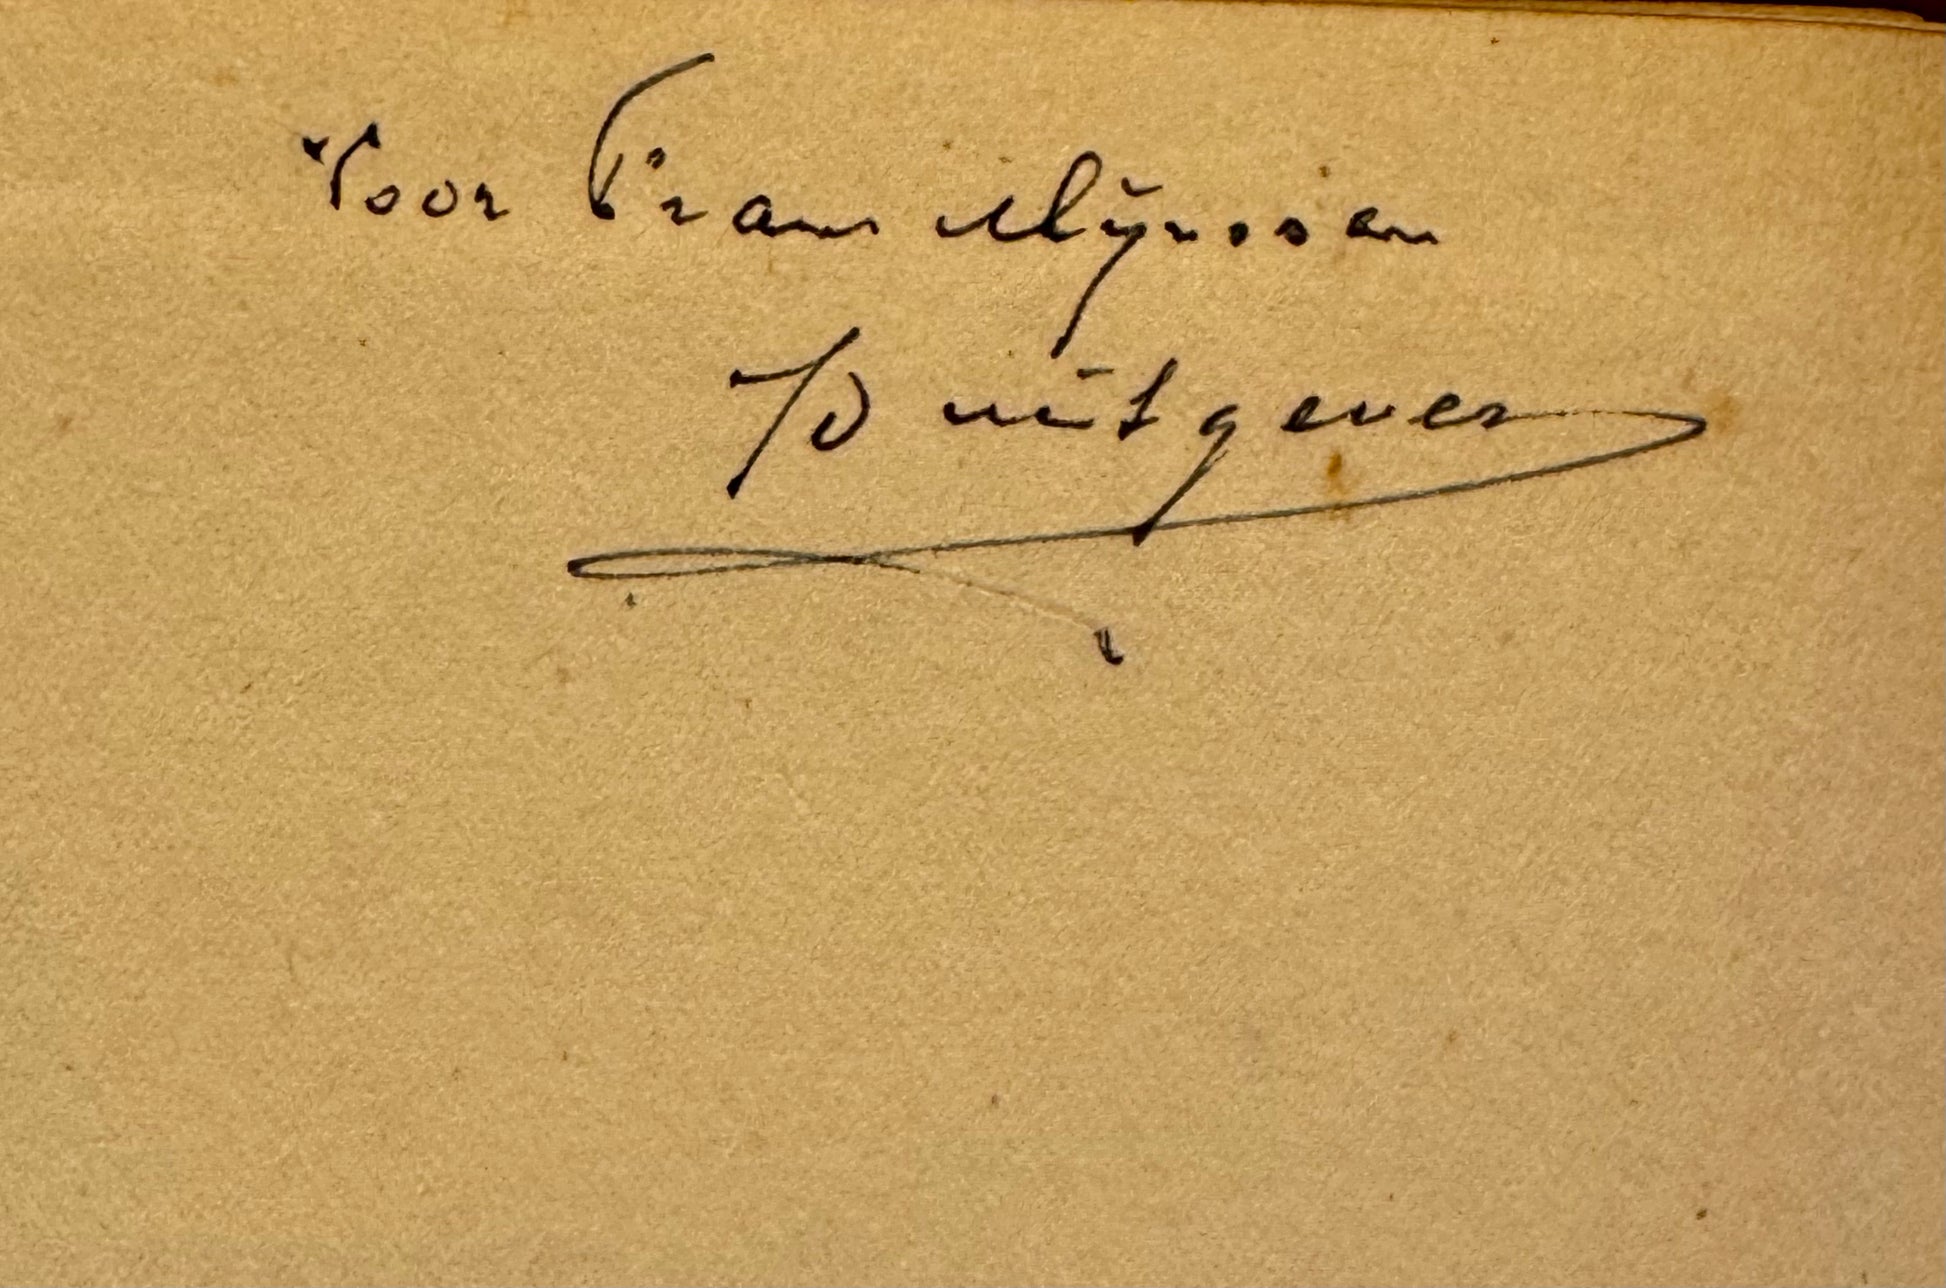 Voor Frans Mijnssen
De uitgever